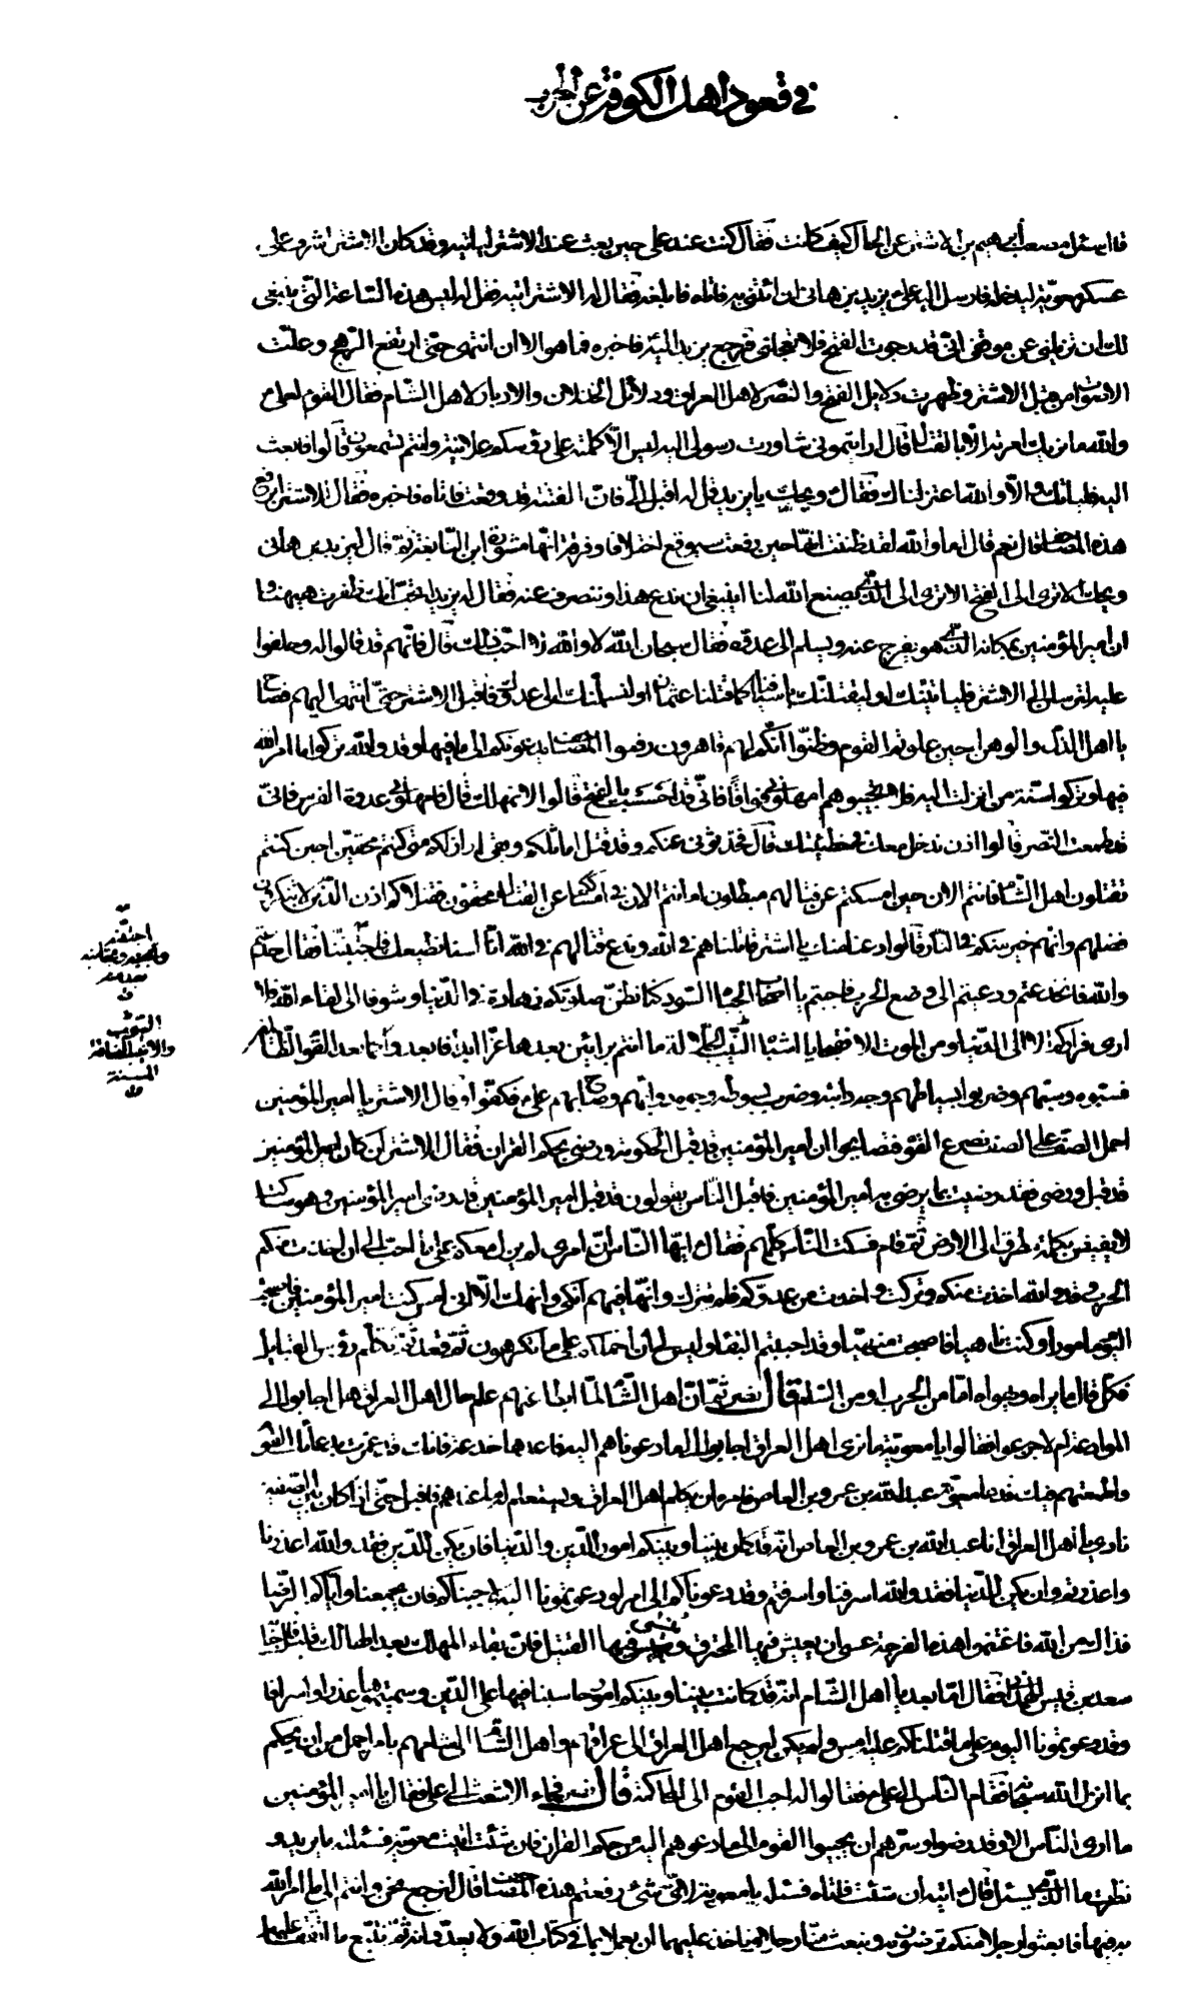 في قعود اهل الكوفة عن الحرب
قال سئل مصعب ابراهيم بن الاشتر عن الحال كيف كانت فقال كنت عند علي حين بعث عند الاشتر لياتيه وقد كان الاشتر اشرف على
عسكر معوية ليدخله فارسل اليه علي يزيد بن هاني ان ائتني به فاتاه فابلغه فقال له الاشتر ائته فقل له ليس هذه الساعة التي ينبغي
لك ان تزيلني عن موقفي انّي قد رجوت الفتح فلا تعجلني فرجع يزيد اليه فاخبره فما هو الا ان انتهى حتى ارتفع الرهج وعلت
الاصوات من قبل الاشتر وظهرت دلايل الفتح والنصر لاهل العراق ودلائل الخذلان والادبار لاهل الشام فقال القوم لعلي
والله ما نريك امرته الّا بالقتال قال ارايتموني شاورت رسولي اليه اليس الّا كلمته على رؤسكم علانية وانتم تسمعون قالوا فابعث
اليه فلياتك والّا والله اعتزلناك فقال ويحك يا يزيد قل له اقبل الّي فانّ الفتنة قد وقعت فاتاه فاخبره فقال الاشتر ابرفع
هذه المصاحف قال نعم قال اما والله لقد ظننت انّها حين رفعت ستوقع اختلافا وفرقة انّها مشورة ابن النابغة ثمّ قال ليزيد بن هاني
ويحك الا ترى الى الفتح الا ترى الى الّذي يصنع الله لنا اينبغي ان ندع هذا وننصرف عنه فقال له يزيد اتحبّ انك ظفرت هيهنا و
ان امير المؤمنين بمكانه الّذي هو به يفرج عنه ويسلم الى عدوّه فقال سبحان الله لا والله ما احبّ ذلك قال فانّهم قد قالوا له وحلفوا
عليه لترسلن الى الاشتر فلياتينّك او ليقتلنّك باسيافنا كما قتلنا عثمان او لنسلّمنّك الى عدوّك فاقبل الاشتر حتّى انتهى اليهم فصاح
يا اهل الذلّ والوهن احين علوتم القوم وظنّوا انّكم لهم قاهرون رفعوا المصاحف يدعونكم الى ما فيها وقد والله تركوا ما امر الله
فيها وتركوا سنّة من انزلت اليه فلا تجيبوهم امهلوني فواقاً فانّي قد احسست بالفتح قالوا لا نمهلك قال فامهلوني عدوة الفرس فانّي
قد طمعت النّصر قالوا اذن ندخل معك في خطيئتك قال فحدّثوني عنكم وقد قتل اماثلكم وبقي اراذلكم متى كنتم محقّين احين كنتم
تقتلون اهل الشام فانتم الان حين امسكتم عن قتالهم مبطلون ام انتم الان في امساككم عن القتال محقّون فقتلاكم اذن الّذين لا تنكرون
فضلهم وانّهم خير منكم في النّار قالوا دعنا منك يا اشتر قاتلناهم في الله وندع قتالهم في الله انّا لسنا نطيعك فاجتنبنا فقال خدعتم
والله فانخدعتم ودعيتم الى وضع الحرب فاجبتم يا اصحاب الجباه السّود كنّا نظنّ صلوتكم زهادة في الدّنيا وشوقا الى لقاء الله فلا
ارى فراركم الا الى الدّنيا من الموت الا فقبحا يا اشباه النّيب الجلّالة ما انتم برائين بعدها عزّا ابدا فابعدوا كما بعد القوم الظّالمون
فسبّوه وسبّهم وضربوا بسياطهم وجه دابّته وضرب بسوطه وجوه دوابّهم وصاح بهم علي فكفّوا وقال الاشتر يا امير المؤمنين
احمل الصفّ على الصف نصرع القوم فتصايحوا ان امير المؤمنين قد قبل الحكومة ورضي بحكم القران فقال الاشتر ان كان امير المؤمنين
قد قبل ورضي فقد رضيت بما يرضى به امير المؤمنين فاقبل النّاس يقولون قد قبل امير المؤمنين قد رضي امير المؤمنين وهو ساكت
لا يفيض بكلمة مطرق الى الارض ثمّ قام فسكت النّاس كلّهم فقال ايّها النّاس انّ امري لم يزل معكم على ما احبّ الى ان اخذت منكم
الحرب وقد والله اخذت منكم وتركت واخذت من عدوّكم فلم تترك وانّها فيهم انكى وانهك الا انّي امس كنت امير المؤمنين فاصبحت
اليوم مامورا وكنت ناهيا فاصبحت منهيّا وقد احببتم البقاء وليس لي ان احملكم على ما تكرهون ثمّ قعد ثمّ تكلّم رؤس القبايل
فكلّ قال ما يراه ويهواه امّا من الحرب او من السّلم قال نصر ثمّ انّ اهل الشّام لمّا ابطا عنهم علم حال اهل العراق هل اجابوا الى
الموادعة ام لا جزعوا فقالوا يا معوية ما نرى اهل العراق اجابوا الى ما دعوناهم اليه فاعدها خدعة فانك قد غمرت بدعائك القوم
واطمعتهم فيك فدعا معوية عبد الله بن عمرو بن العاص فامره ان يكلم اهل العراق ويستعلم له ما عندهم فاقبل حتّى اذا كان بين الصّفين
نادى يا اهل العراق انا عبد الله بن عمرو بن العاص انّه قد كان بيننا وبينكم امور للدّين والدّنيا فان يكن للدّين فقد والله اعذرنا
واعذرتم وان يكن للدّنيا فقد والله اسرفنا واسرفتم وقد دعوناكم الى امر لو دعوتمونا اليه لاجبناكم فان يجمعنا وايّاكم الرّضا
فذاك من الله فاغتنموا هذه الفرجة عسى ان يعيش فيها المحترق وينسى فيها القتيل فانّ بقاء المهلك بعد الهالك قليل فاجابه
سعد بن قيس الهمداني فقال امّا بعد يا اهل الشّام انّه قد كانت بيننا وبينكم امور حامينا فيها على الدّين وسميتموها غدرا واسرافا
وقد دعوتمونا اليوم على ما قاتلناكم عليه امس ولم يكن ليرجع اهل العراق الى عراقهم واهل الشّام الى شامهم بامر اجمل من ان يحكم
بما انزل الله سبحانه فقام النّاس الى علي فقالوا له اجب القوم الى المحاكمة قال نصر فجاء الاشعث الى علي فقال يا امير المؤمنين
ما ارى النّاس الا وقد رضوا وسرّهم ان يجيبوا القوم الى ما دعوهم اليه من حكم القران فان شئت اتيت معوية فسئلته ما يريد و
نظرت ما الّذي يسئل قال ائته ان شئت فاتاه فسئله يا معوية لايّ شئ رفعتم هذه المصاحف قال لنرجع نحن وانتم الى ما امر الله
به فيها فابعثوا رجلا منكم ترضون به ونبعث منّا رجلا وناخذ عليهما ان يعملا بما في كتاب الله ولا يعدوانه ثمّ نتّبع ما اتّفقا عليه
النيب
والانياب الناقة
المسنة